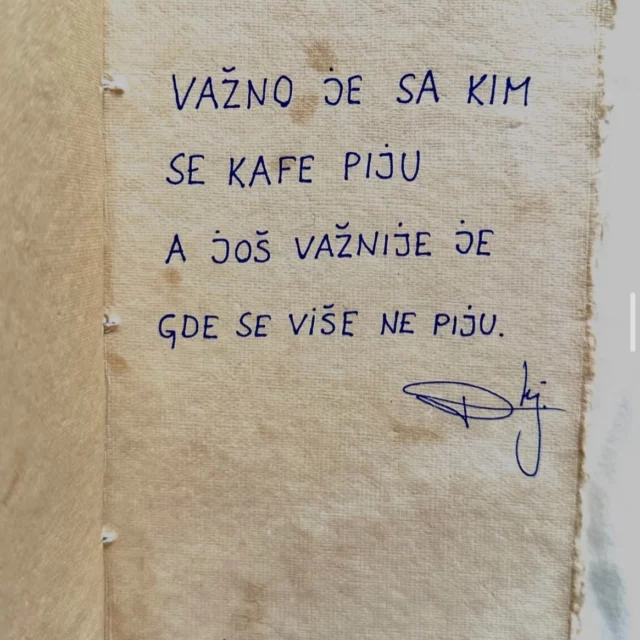 VAŽNO JE SA KIM
SE KAFE PIJU
A JOŠ VAŽNIJE JE
GDE SE VIŠE NE PIJU.